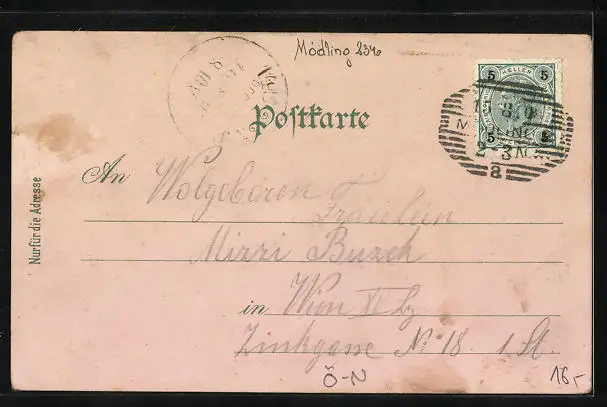 Mödling 234b
5 HELLER 5
Postkarte
2-3N
a
Nur für die Adresse
An Wolgeboren
Fräulein
Mizzi Buzek
in Wien
Zinkgasse No 18. 1 St.
Ö-N
16,-